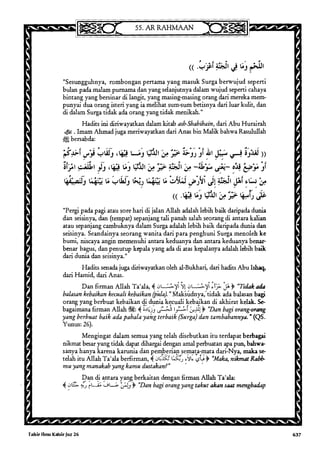 55. AR RAHMAAN
(( . وَمَا فِي الْجَنَّةِ أَعْزَبُ
"Sesungguhnya, rombongan pertama yang masuk Surga berwujud seperti
bulan pada malam purnama dan yang selanjutnya dalam wujud seperti cahaya
bintang yang bersinar di langit, yang masing-masing orang dari mereka mem-
punyai dua orang isteri yang ia melihat sum-sum betisnya dari luar kulit, dan
di dalam Surga tidak ada orang yang tidak menikah."
Hadits ini diriwayatkan dalam kitab ash-Shahihain, dari Abu Hurairah
ﷺ. Imam Ahmad juga meriwayatkan dari Anas bin Malik bahwa Rasulullah
ﷺ bersabda:
"Pergi pada pagi atau sore hari di jalan Allah adalah lebih baik daripada dunia
dan seisinya, dan (tempat) sepanjang tali panah salah seorang di antara kalian
atau sepanjang cambuknya dalam Surga adalah lebih baik daripada dunia dan
seisinya. Seandainya seorang wanita dari para penghuni Surga menoleh ke
bumi, niscaya angin memenuhi antara keduanya dan antara keduanya benar-
benar bagus, dan penutup kepala yang ada di atas kepalanya adalah lebih baik
dari dunia dan seisinya."
Hadits senada juga diriwayatkan oleh al-Bukhari, dari hadits Abu Ishaq,
dari Hamid, dari Anas.
Dan firman Allah Ta'ala, ﴿ هَلْ جَزَاءُ الْإِحْسَانِ إِلَّا الْإِحْسَانُ ﴾ "Tidak ada
balasan kebaikan kecuali kebaikan (pula)." Maksudnya, tidak ada balasan bagi
orang yang berbuat kebaikan di dunia kecuali kebajikan di akhirat kelak. Se-
bagaimana firman Allah ﷻ: ﴿ لِّلَّذِينَ أَحْسَنُوا الْحُسْنَىٰ وَزِيَادَةٌ ﴾ "Dan bagi orang-orang
yang berbuat baik ada pahala yang terbaik (Surga) dan tambahannya." (QS.
Yunus: 26).
Mengingat dalam semua yang telah disebutkan itu terdapat berbagai
nikmat besar yang tidak dapat dihargai dengan amal perbuatan apa pun, bahwa-
sanya hanya karena karunia dan pemberian semata-mata dari-Nya, maka se-
telah itu Allah Ta'ala berfirman, ﴿ فَبِأَيِّ آلَاءِ رَبِّكُمَا تُكَذِّبَانِ ﴾ "Maka, nikmat Rabb-
mu yang manakah yang kamu dustakan?"
Dan di antara yang berkaitan dengan firman Allah Ta'ala:
﴿ وَلِمَنْ خَافَ مَقَامَ رَبِّهِ جَنَّتَانِ ﴾ "Dan bagi orang yang takut akan saat menghadap
Tafsir Ibnu Katsir Juz 26
637